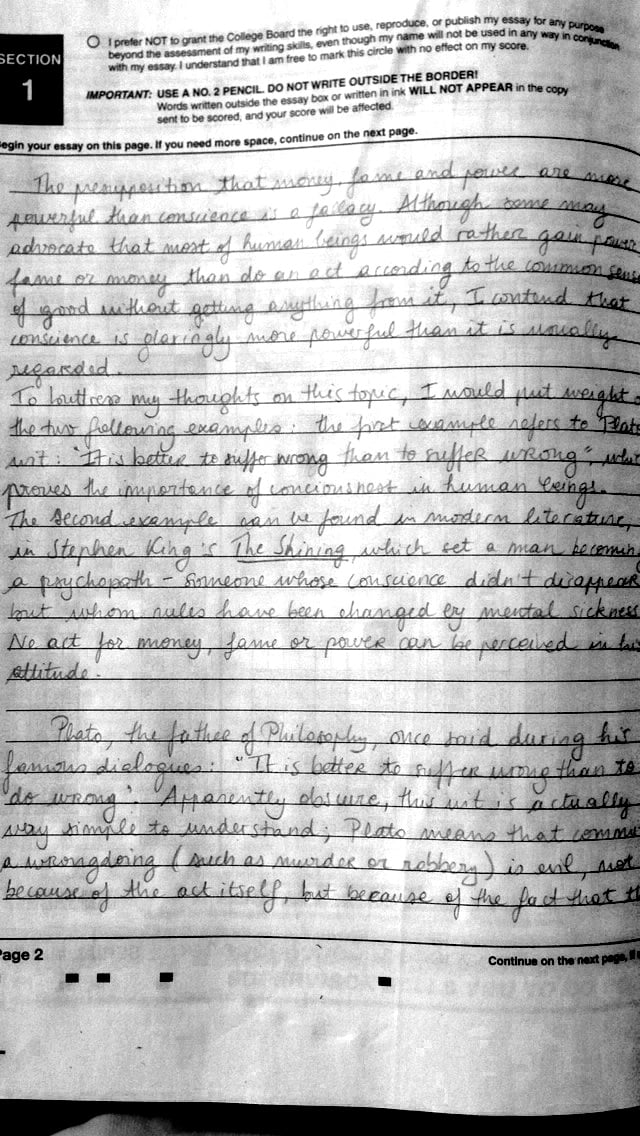 SECTION
1
I prefer NOT to grant the College Board the right to use, reproduce, or publish my essay for any purpose
beyond the assessment of my writing skills, even though my name will not be used in any way in conjunction
with my essay. I understand that I am free to mark this circle with no effect on my score.
IMPORTANT: USE A NO. 2 PENCIL. DO NOT WRITE OUTSIDE THE BORDER!
Words written outside the essay box or written in ink WILL NOT APPEAR in the copy
sent to be scored, and your score will be affected.
egin your essay on this page. If you need more space, continue on the next page.
The presupposition that money, fame and power are more
powerful than conscience is a fallacy. Although some may
advocate that most of human beings would rather gain power
fame or money than do an act according to the common sense
of good without getting anything from it, I contend that
conscience is glaringly more powerful than it is usually
regarded.
To buttress my thoughts on this topic, I would put weight o
the two following examples: the first example refers to Plato
: "It is better to suffer wrong than to suffer wrong", whi
proves the importance of conciousness in human beings.
The second example can be found in modern literature,
in Stephen King's The Shining, which set a man becoming
a psychopath - someone whose conscience didn't disappear
but whom rules have been changed by mental sickness
No act for money, fame or power can be perceived in his
attitude.
Plato, the father of Philosophy, once said during his
famous dialogues: "It is better to suffer wrong than to
do wrong". Apparently obscure, this is actually
very simple to understand; Plato means that commit
a wrongdoing (such as murder or robbery) is evil, not
because of the act itself, but because of the fact that th
Page 2
Continue on the next page, if